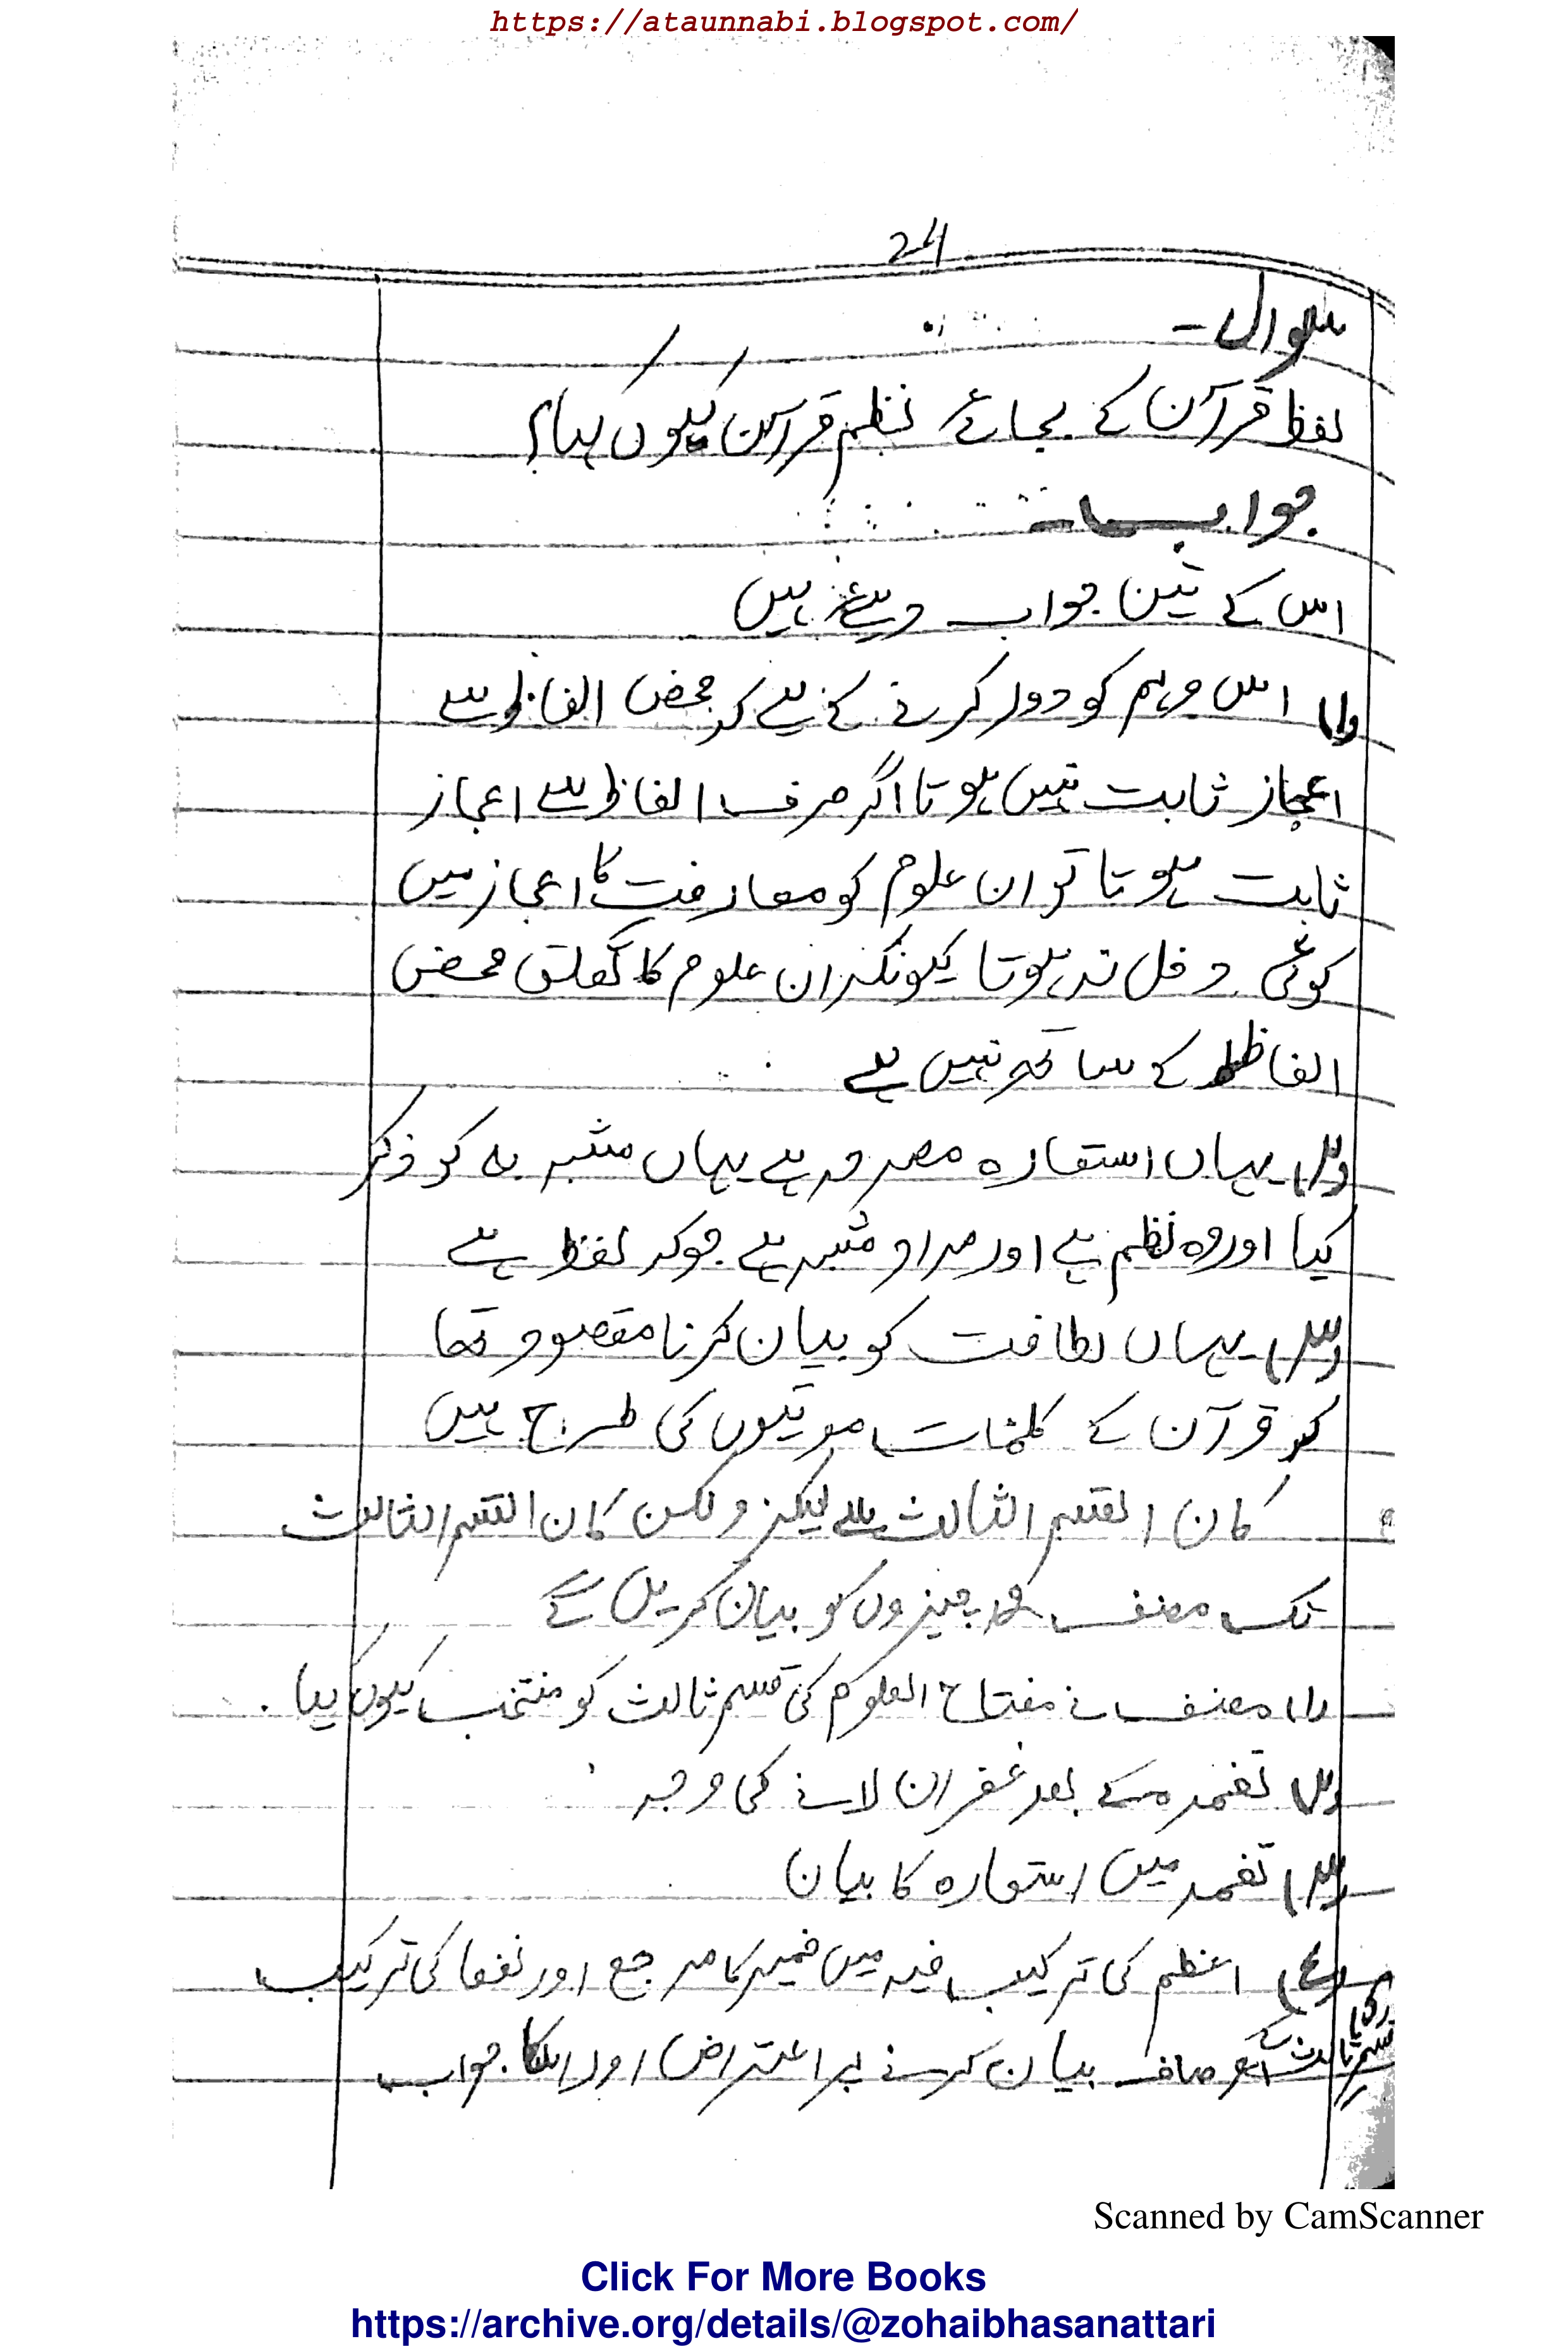 https://ataunnabi.blogspot.com/
سوال -
لفظ قرآن کے بجائے نظم قرآن کیوں کہا؟
جواب
اس کے تین جواب دیئے ہیں
(۱) اس وہم کو دور کرنے کے لیے کہ محض الفاظ سے
اعجاز ثابت نہیں ہوتا اگر صرف الفاظ سے اعجاز
ثابت ہوتا تو ان علوم کو معارفت کا اعجاز میں
کوئی دخل نہ ہوتا کیونکہ ان علوم کا تعلق محض
الفاظ کے ساتھ نہیں ہے
(۲) یہاں استعارہ مصرحہ ہے یہاں مشبہ بہ کو ذکر
کیا اور وہ نظم ہے اور مراد مشبہ ہے جو کہ لفظ ہے
(۳) یہاں لطافت کو بیان کرنا مقصود تھا
کہ قرآن کے کلمات موتیوں کی طرح ہیں
کان القسم الثالث سے لیکر ولکن کان القسم الثالث
تک مصنف چیزوں کو بیان کریں گے
(۱) مصنف نے مفتاح العلوم کی قسم ثالث کو منتخب کیوں کیا
(۲) تغمدہ کے بعد غفران لانے کی وجہ
(۳) تغمد میں استعارہ کا بیان
(۴) اعظم کی ترکیب فیہ میں ضمیر کا مرجع اور نفعا کی ترکیب
قسم ثالث کے اوصاف بیان کرنے پر اعتراض اور اسکا جواب
Scanned by CamScanner
Click For More Books
https://archive.org/details/@zohaibhasanattari